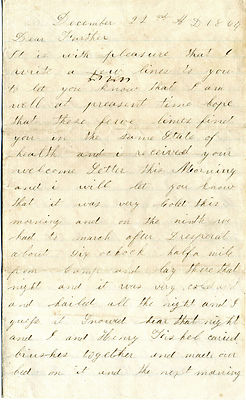 December 22nd A D 1864
Dear Farther
It is with pleasure that I
write a few lines to you
to let you know that I am
well at preasent time hope
that these fiwe lines find
you in the same State of
health and i received your
welcome Letter this Morning
and i will let you know
that it was very Cold this
morning and on the ninth we
had to march after
about Six oclock half a mile
from Camp and lay there that
night and it was very cold
and hailed all the night and I
guess it Snowed that night
and I and Henry caried
brushes together and made our
bed on it and the next morning